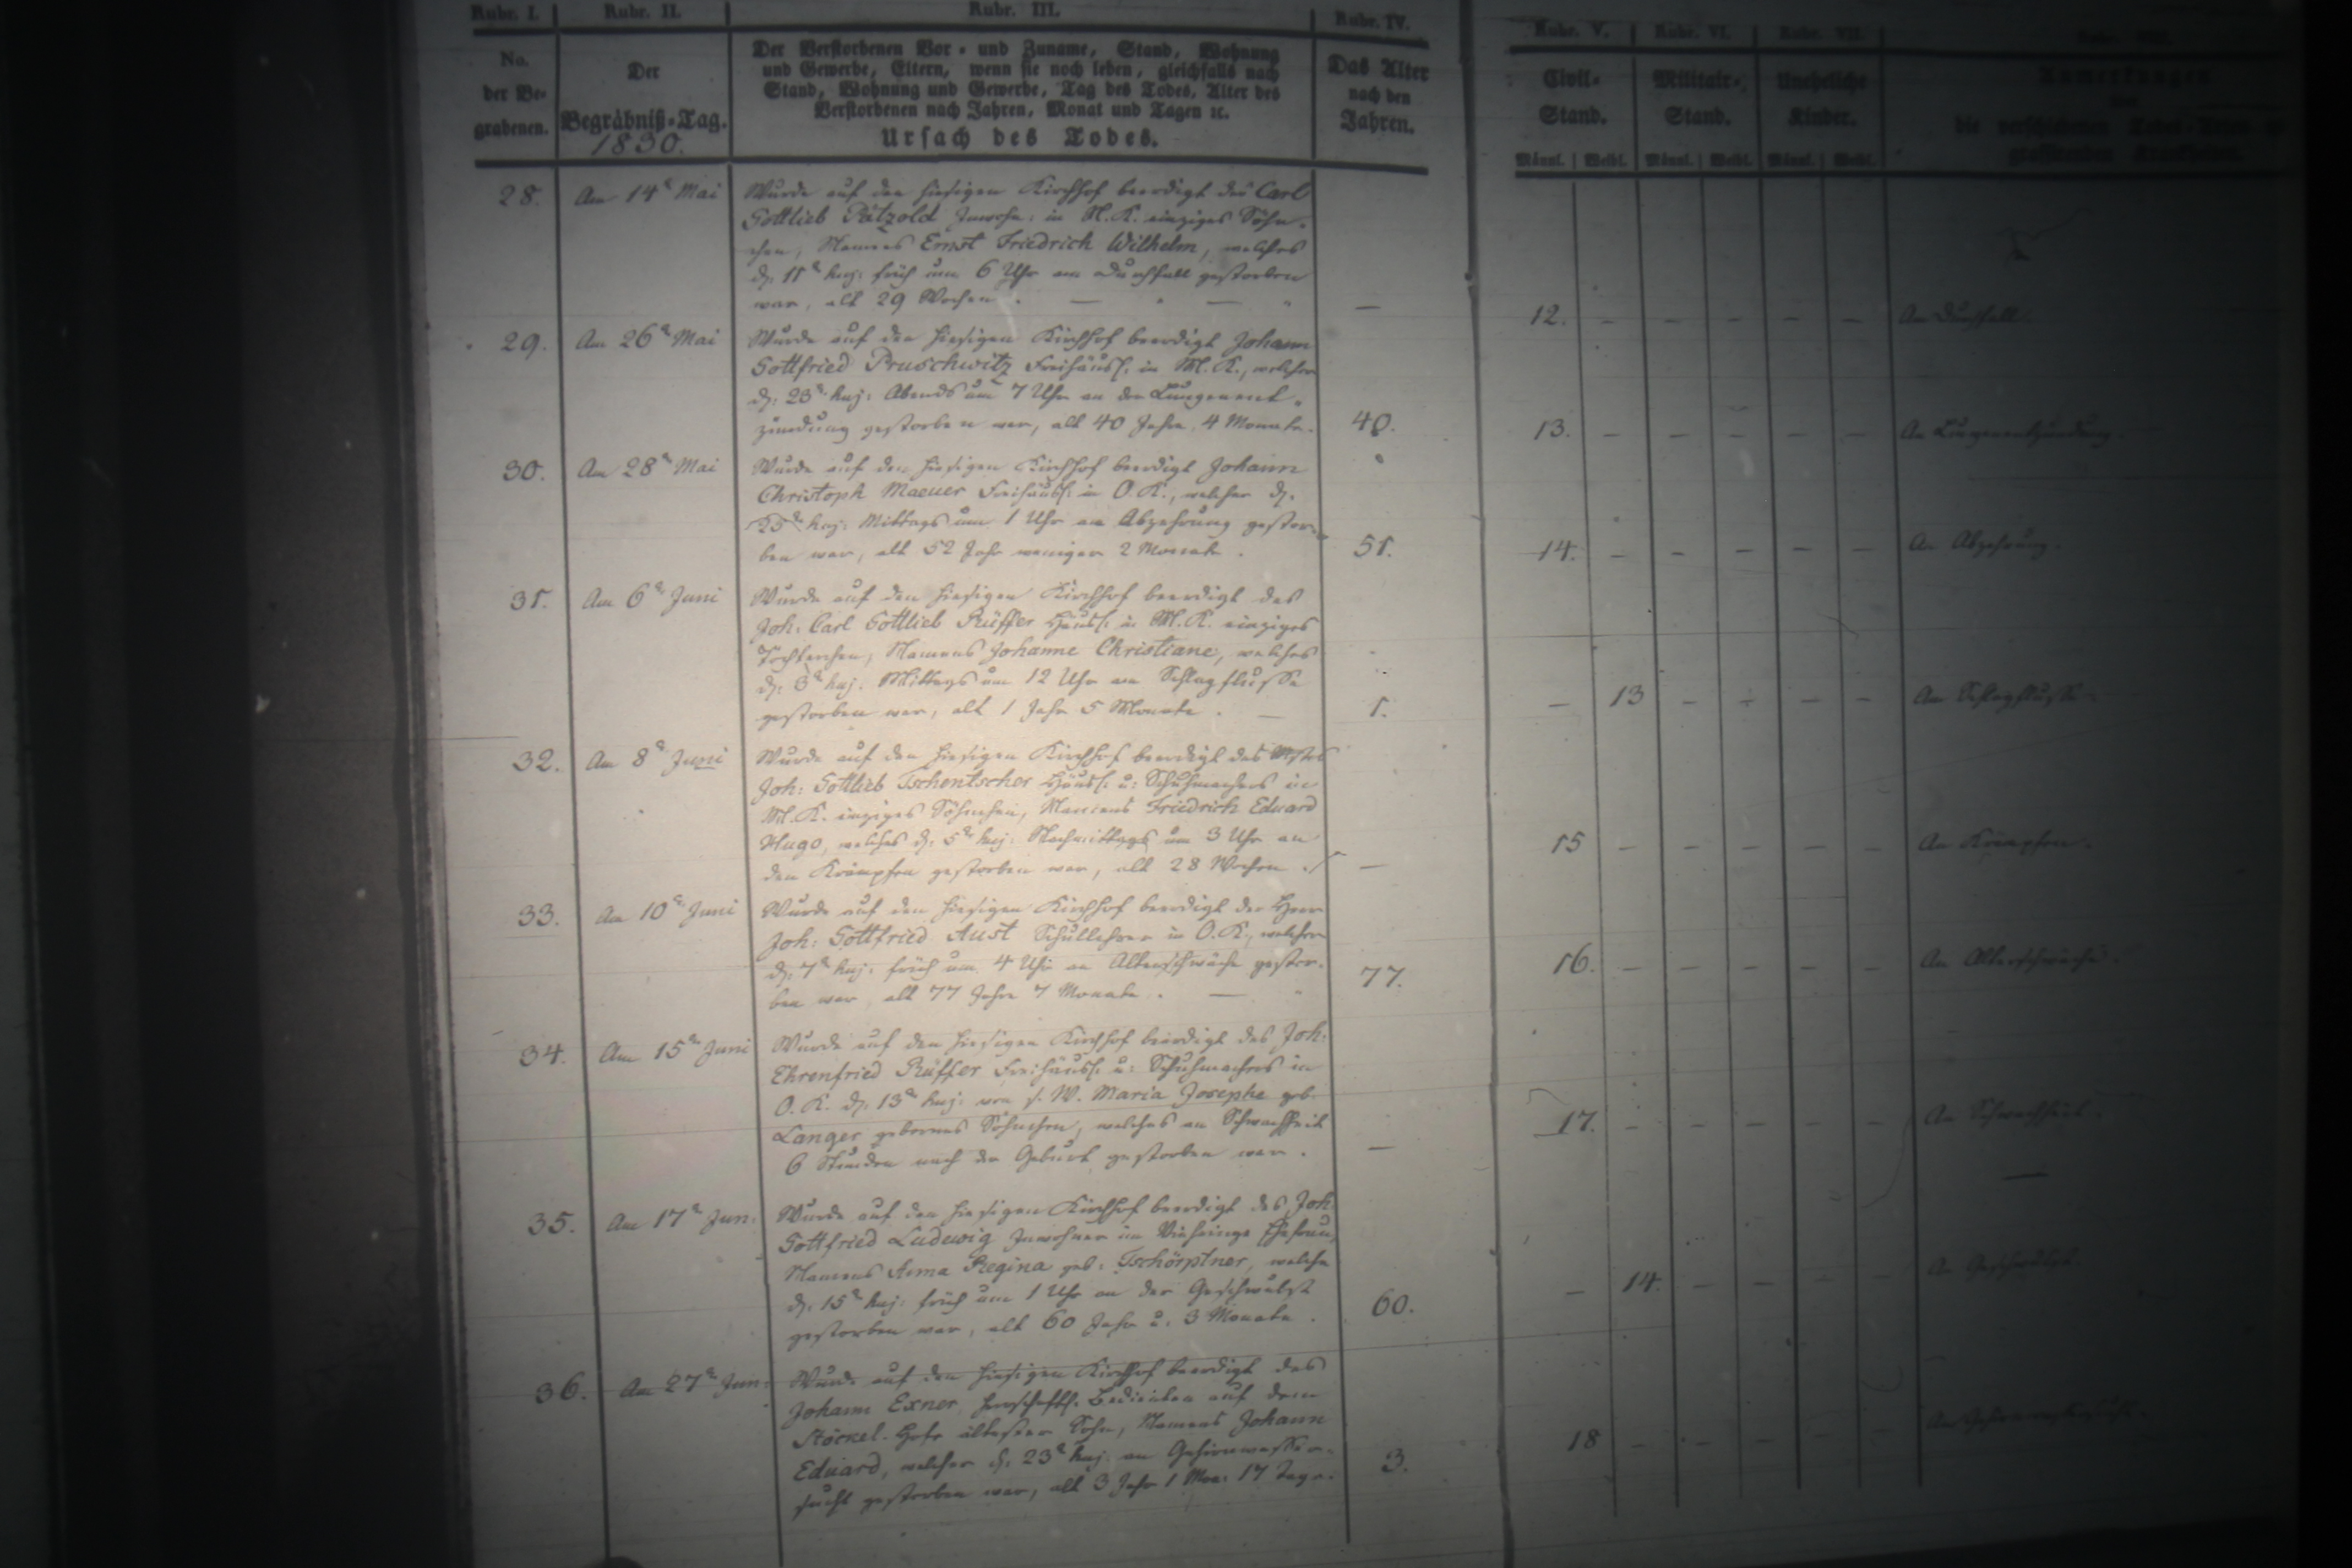 Rubr. I. Rubr. II. Rubr. III. Rubr. IV. Rubr. V. Rubr. VI. Rubr. VII.
No. der Be- grabenen.
Der Begräbniß-Tag. 1830.
Der Verstorbenen Vor- und Zuname, Stand, Wohnung
und Gewerbe, Eltern, wenn sie noch leben, gleichfalls nach
Stand, Wohnung und Gewerbe, Tag des Todes, Alter des
Verstorbenen nach Jahren, Monat und Tagen ꝛc.
Ursach des Todes.
Das Alter nach den Jahren.
Civil- Stand. Militair- Stand. Uneheliche Kinder. Anmerkungen
die verschiedenen
grassirenden Krankheiten.
Männl. Weibl. Männl. Weibl. Männl. Weibl.
28. Am 14t Mai Wurde auf den hiesigen Kirchhof beerdigt des Carl
Gottlieb Pätzold Inwohn: in N. K. einziges Söhn-
chen, Namens Ernst Friedrich Wilhelm, welches
d. 11t huj: früh um 6 Uhr am Durchfall gestorben
war, alt 29 Wochen. — — — 12. — — — — — Am Durchfall.
29. Am 26t Mai Wurde auf den hiesigen Kirchhof beerdigt Johann
Gottfried Pruschwitz Freihäusl: in M. K., welcher
d: 23t huj: Abends um 7 Uhr an der Lungenent-
zündung gestorben war, alt 40 Jahre, 4 Monate. 40. 13. — — — — — An Lungenentzündung.
30. Am 28t Mai Wurde auf den hiesigen Kirchhof beerdigt Johann
Christoph Maeuer Freihäusl: in O. K., welcher d.
25t huj: Mittags um 1 Uhr an Abzehrung gestor-
ben war, alt 52 Jahr weniger 2 Monate. 51. 14. — — — — — An Abzehrung.
31. Am 6t Juni Wurde auf den hiesigen Kirchhof beerdigt des
Joh: Carl Gottlieb Rüffer Häusl: in M. K. einziges
Töchterchen, Namens Johanne Christiane, welches
d: 3t huj. Mittags um 12 Uhr am Schlagflusse
gestorben war, alt 1 Jahr 5 Monate. — 1. — 13 — — — — Am Schlagflusse.
32. Am 8t Juni Wurde auf den hiesigen Kirchhof beerdigt des Mstrs
Joh: Gottlieb Tschentscher Häusl: u: Schuhmachers in
M. K. einziges Söhnchen, Namens Friedrich Eduard
Hugo, welches d: 5t huj: Nachmittags um 3 Uhr an
den Krämpfen gestorben war, alt 28 Wochen. — 15 — — — — — An Krämpfen.
33. Am 10t Juni Wurde auf den hiesigen Kirchhof beerdigt der Herr
Joh: Gottfried Aust Schullehrer in O. K., welcher
d: 7t huj: früh um 4 Uhr an Altersschwäche gestor-
ben war, alt 77 Jahre 7 Monate. — 77. 16. — — — — — An Altersschwäche.
34. Am 15t Juni Wurde auf den hiesigen Kirchhof beerdigt des Joh:
Ehrenfried Rüffer Freihäusl: u: Schuhmachers in
O. K. d: 13t huj: von s. W. Maria Josephe geb.
Langer gebornes Söhnchen, welches an Schwachheit
6 Stunden nach der Geburt gestorben war. — 17. — — — — — An Schwachheit.
35. Am 17t Jun: Wurde auf den hiesigen Kirchhof beerdigt des Joh:
Gottfried Ludewig Inwohner im Ehefrau,
Namens Anna Regina geb: Tschörptner, welche
d: 15t huj: früh um 1 Uhr an der Geschwulst
gestorben war, alt 60 Jahr u: 3 Monate. 60. — 14. — — — — An Geschwulst.
36. Am 27t Jun: Wurde auf den hiesigen Kirchhof beerdigt des
Johann Exner, herrschaftl: Bedienten auf dem
Stöckel-Hofe ältester Sohn, Namens Johann
Eduard, welcher d: 23t huj: an Gehirnwasser-
sucht gestorben war, alt 3 Jahr 1 Mon: 17 Tage. 3. 18 — — — — —